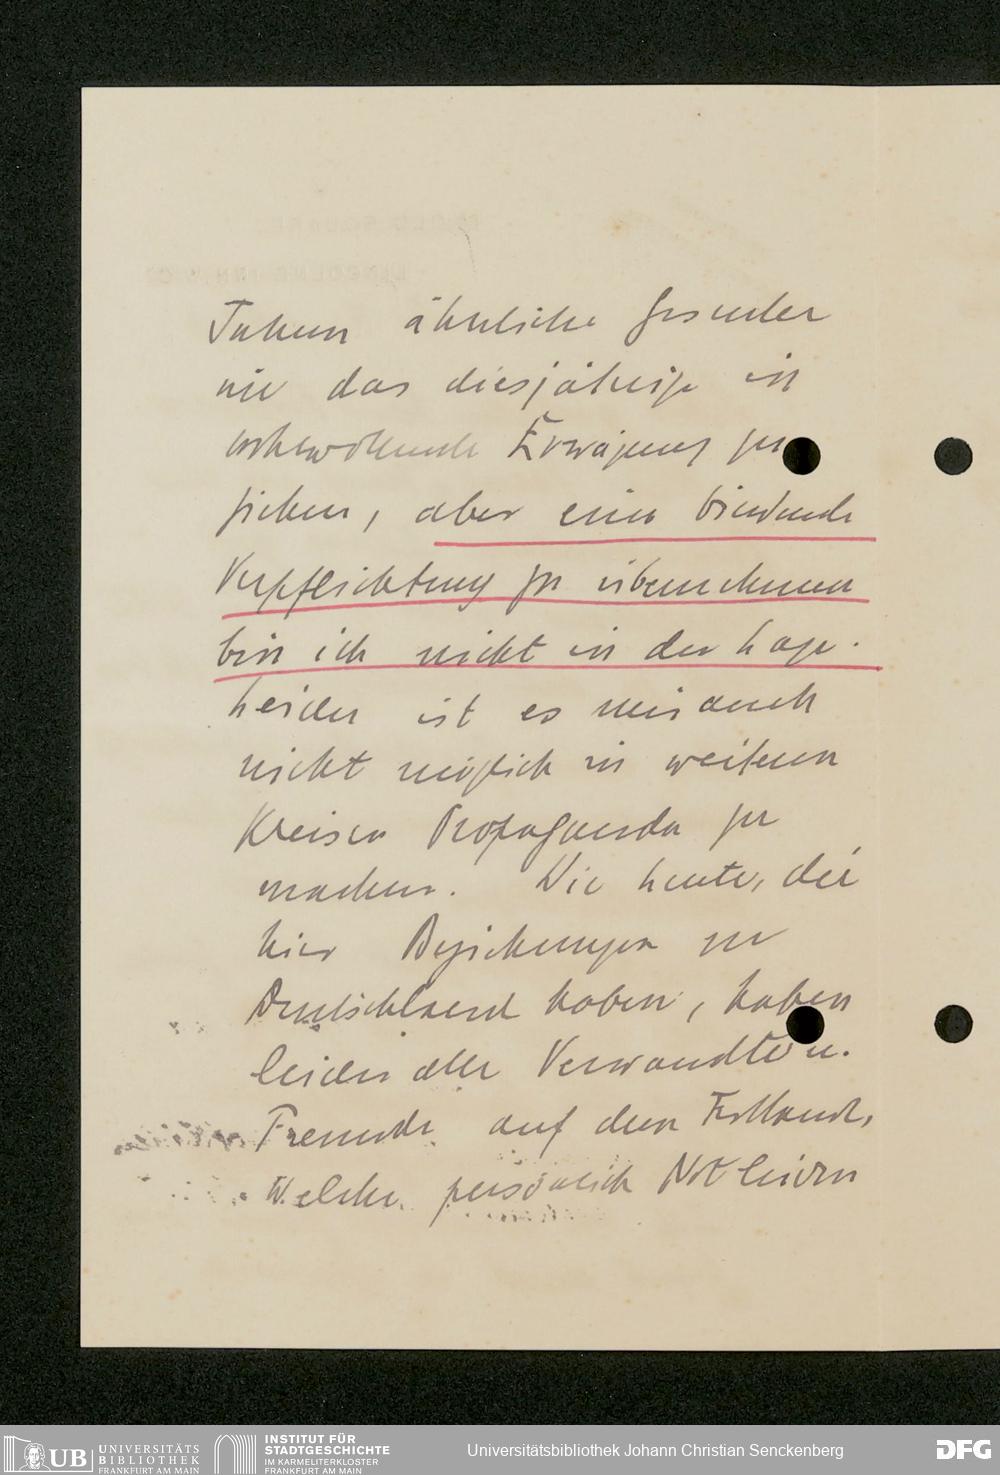 Jahren ähnliche Gesuche
wie das diesjährige in
wohlwollende Erwägung zu
ziehen, aber eine bindende
Verpflichtung zu übernehmen
bin ich nicht in der Lage.
Leider ist es mir auch
nicht möglich in weiteren
Kreisen Propaganda zu
machen. Die Leute, die
hier Beziehungen zu
Deutschland haben, haben
leider alle Verwandte u.
Freunde auf dem Festland,
welche persönlich Not leiden
UB UNIVERSITÄTS
BIBLIOTHEK
FRANKFURT AM MAIN
INSTITUT FÜR
STADTGESCHICHTE
IM KARMELITERKLOSTER
FRANKFURT AM MAIN
Universitätsbibliothek Johann Christian Senckenberg
DFG